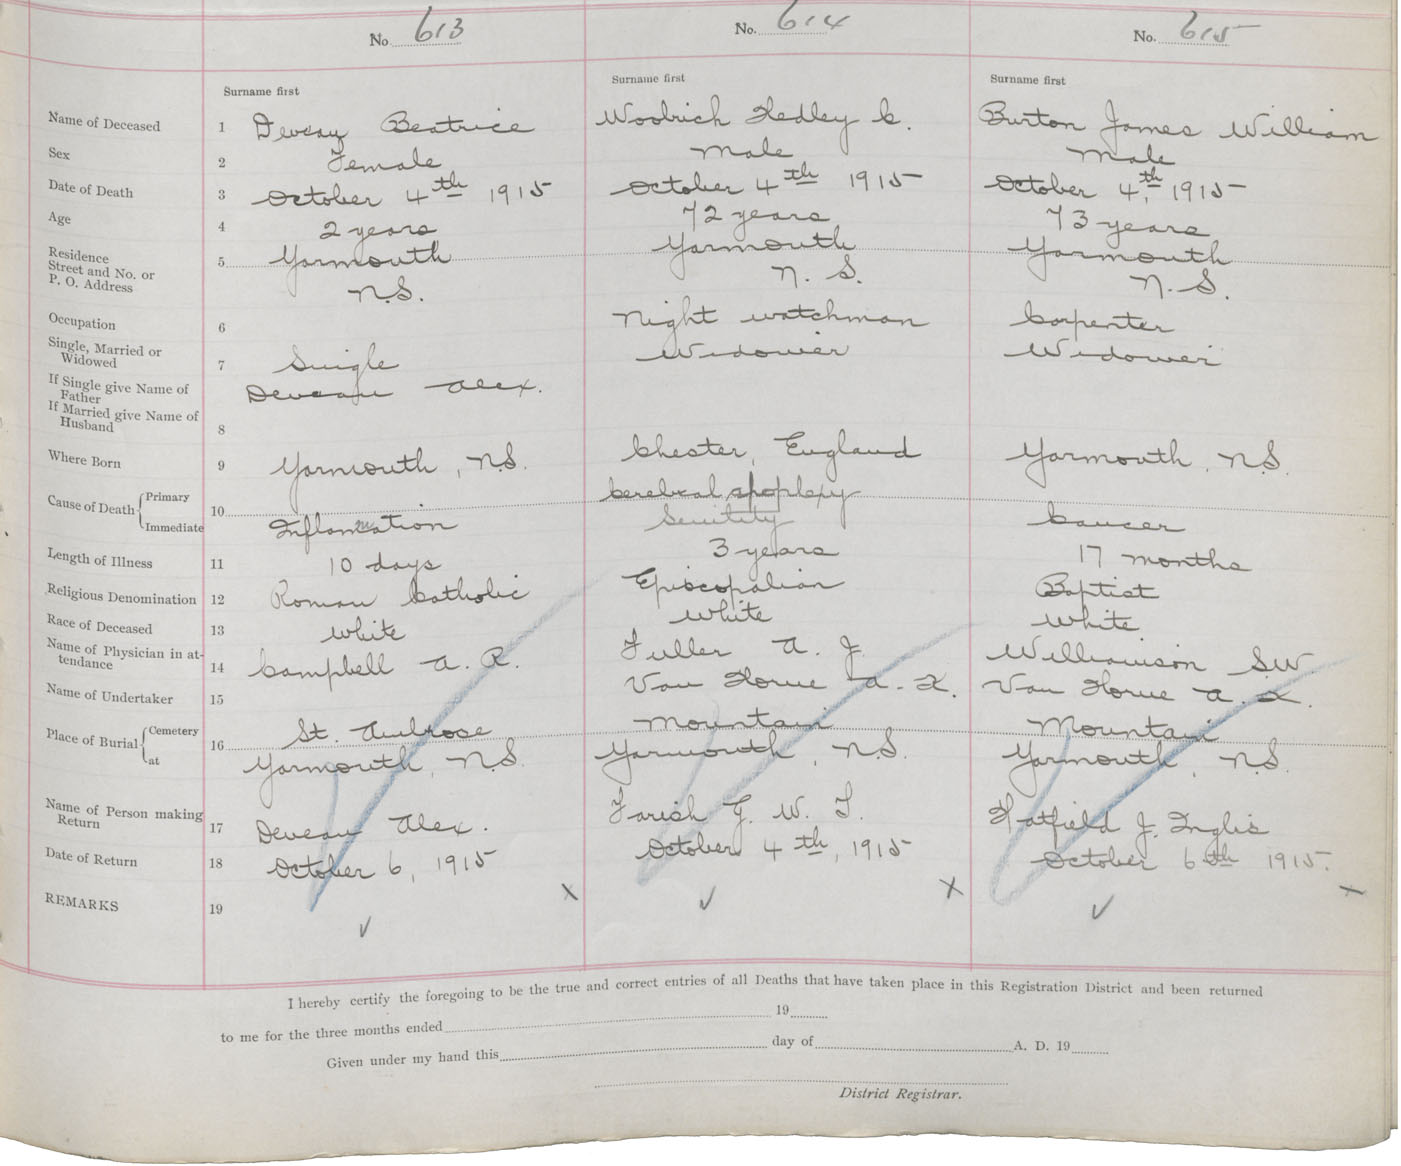 No. 613 No. 614 No. 615
Surname first Surname first Surname first
Name of Deceased 1 Deveau Beatrice Woolrich Hedley C. Burton James William
Sex 2 Female Male Male
Date of Death 3 October 4th 1915 October 4th 1915 October 4th, 1915
Age 4 2 years 72 years 73 years
Residence
Street and No. or
P. O. Address
5 Yarmouth Yarmouth Yarmouth
N.S. N. S. N. S.
Occupation 6 Night watchman Carpenter
Single, Married or
Widowed 7 Single Widower Widower
If Single give Name of
Father
Deveau Alex.
If Married give Name of
Husband 8
Where Born 9 Yarmouth, N.S. Chester, England Yarmouth, N.S.
Cause of Death Primary 10 Cerebral apoplexy
Immediate Inflammation Senility Cancer
Length of Illness 11 10 days 3 years 17 months
Religious Denomination 12 Roman Catholic Episcopalian Baptist
Race of Deceased 13 White White White
Name of Physician in at-
tendance 14 Campbell A. R. Fuller A. J. Williamson S.W
Name of Undertaker 15 Van Horne A. X. Van Horne A. X.
Place of Burial Cemetery 16 St. Ambrose Mountain Mountain
at Yarmouth, N.S. Yarmouth, N.S. Yarmouth, N.S.
Name of Person making
Return 17 Deveau Alex. Farish G. W. T. Hatfield J. Inglis
Date of Return 18 October 6, 1915 October 4th, 1915 October 6th 1915.
REMARKS 19
I hereby certify the foregoing to be the true and correct entries of all Deaths that have taken place in this Registration District and been returned
to me for the three months ended 19
Given under my hand this day of A. D. 19
District Registrar.